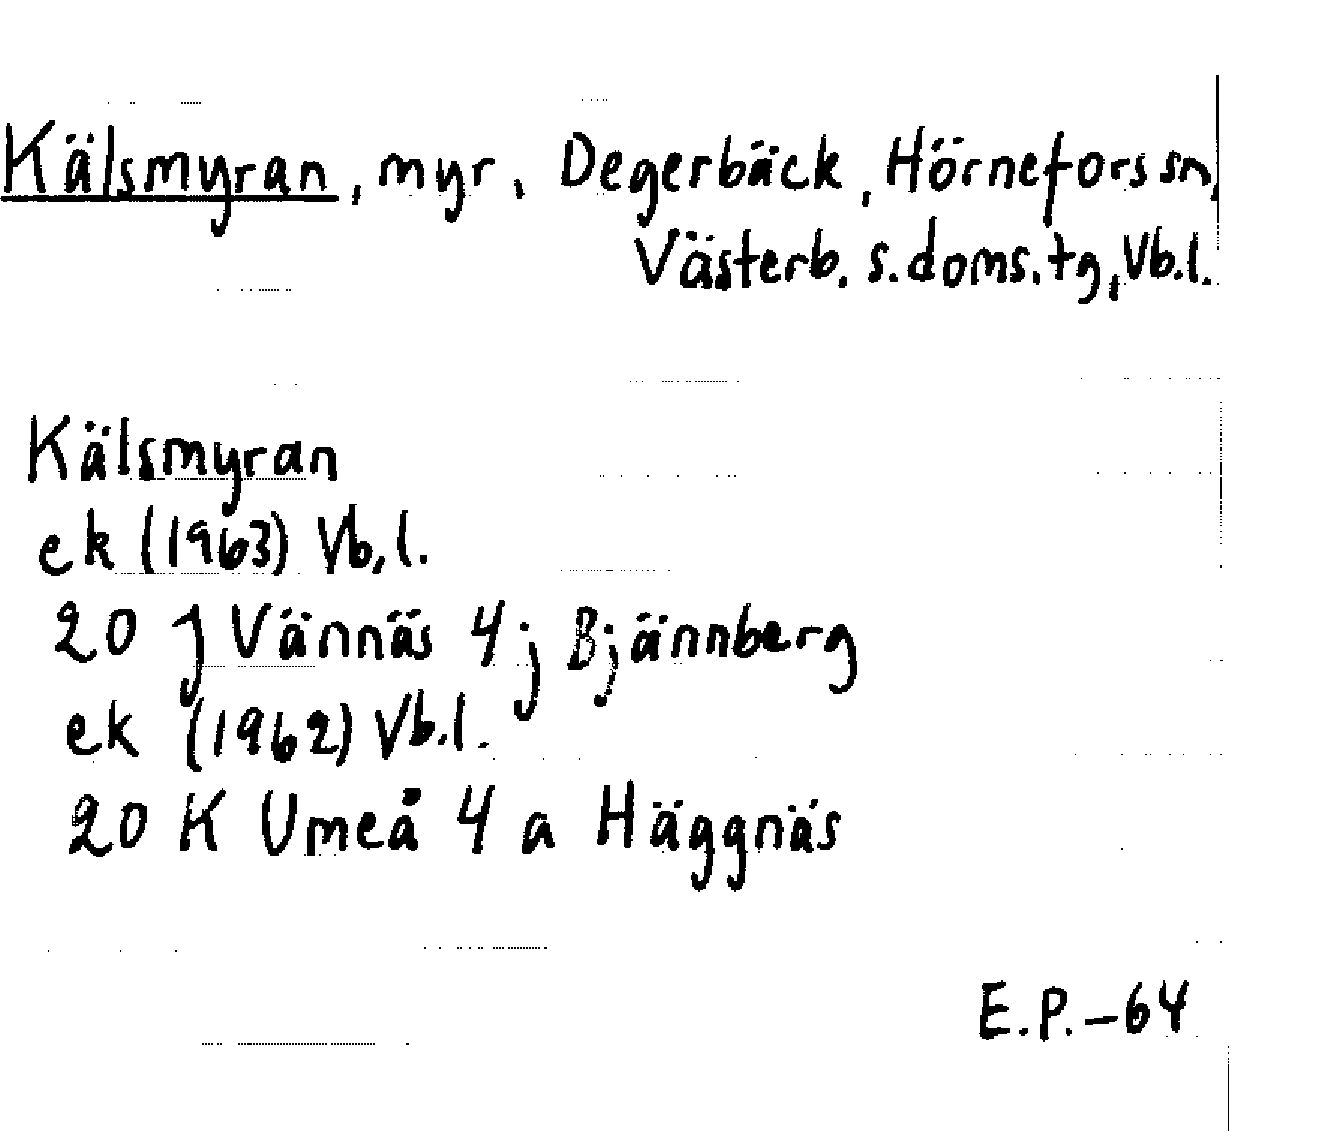 Kälsmyran, myr, Degerbäck, Hörnefors sn,
Västerb. s. doms. tg, Vb.l.
Kälsmyran
ek (1963) Vb.l.
20 J Vännäs 4 j Bjännberg
ek (1962) Vb.l.
20 K Umeå 4 a Häggnäs
E.P.-64